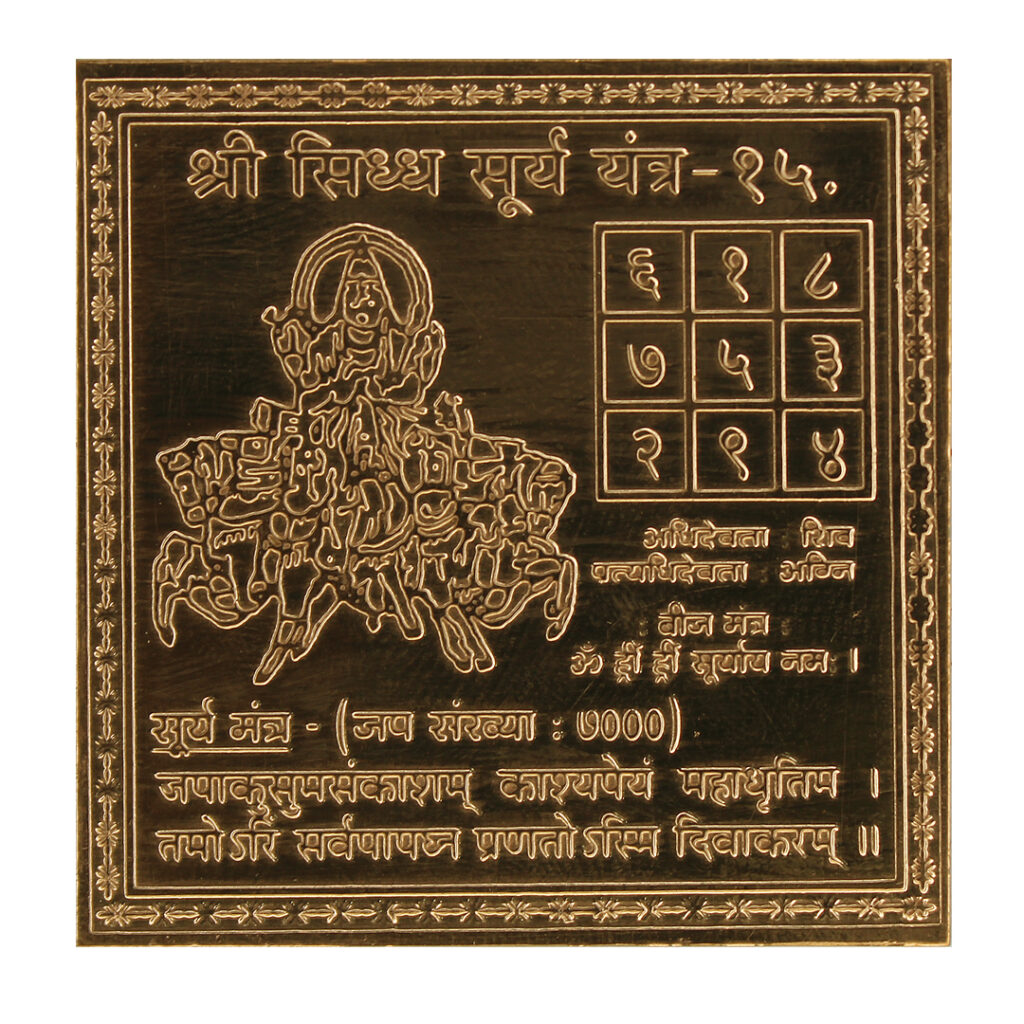 श्री सिध्ध सूर्य यंत्र - १५.
६ १ ८
७ ५ ३
२ ९ ४
अधिदेवता : शिव
पत्यधिदेवता : अग्नि
: बीज मंत्र :
ॐ ह्रीं ह्रीं सूर्याय नमः ।
सूर्य मंत्र - (जप संख्या : ७०००)
जपाकुसुमसंकाशम् काश्यपेयं महाधृतिम ।
तमोऽरिं सर्वपापघ्न प्रणतोऽस्मि दिवाकरम् ॥